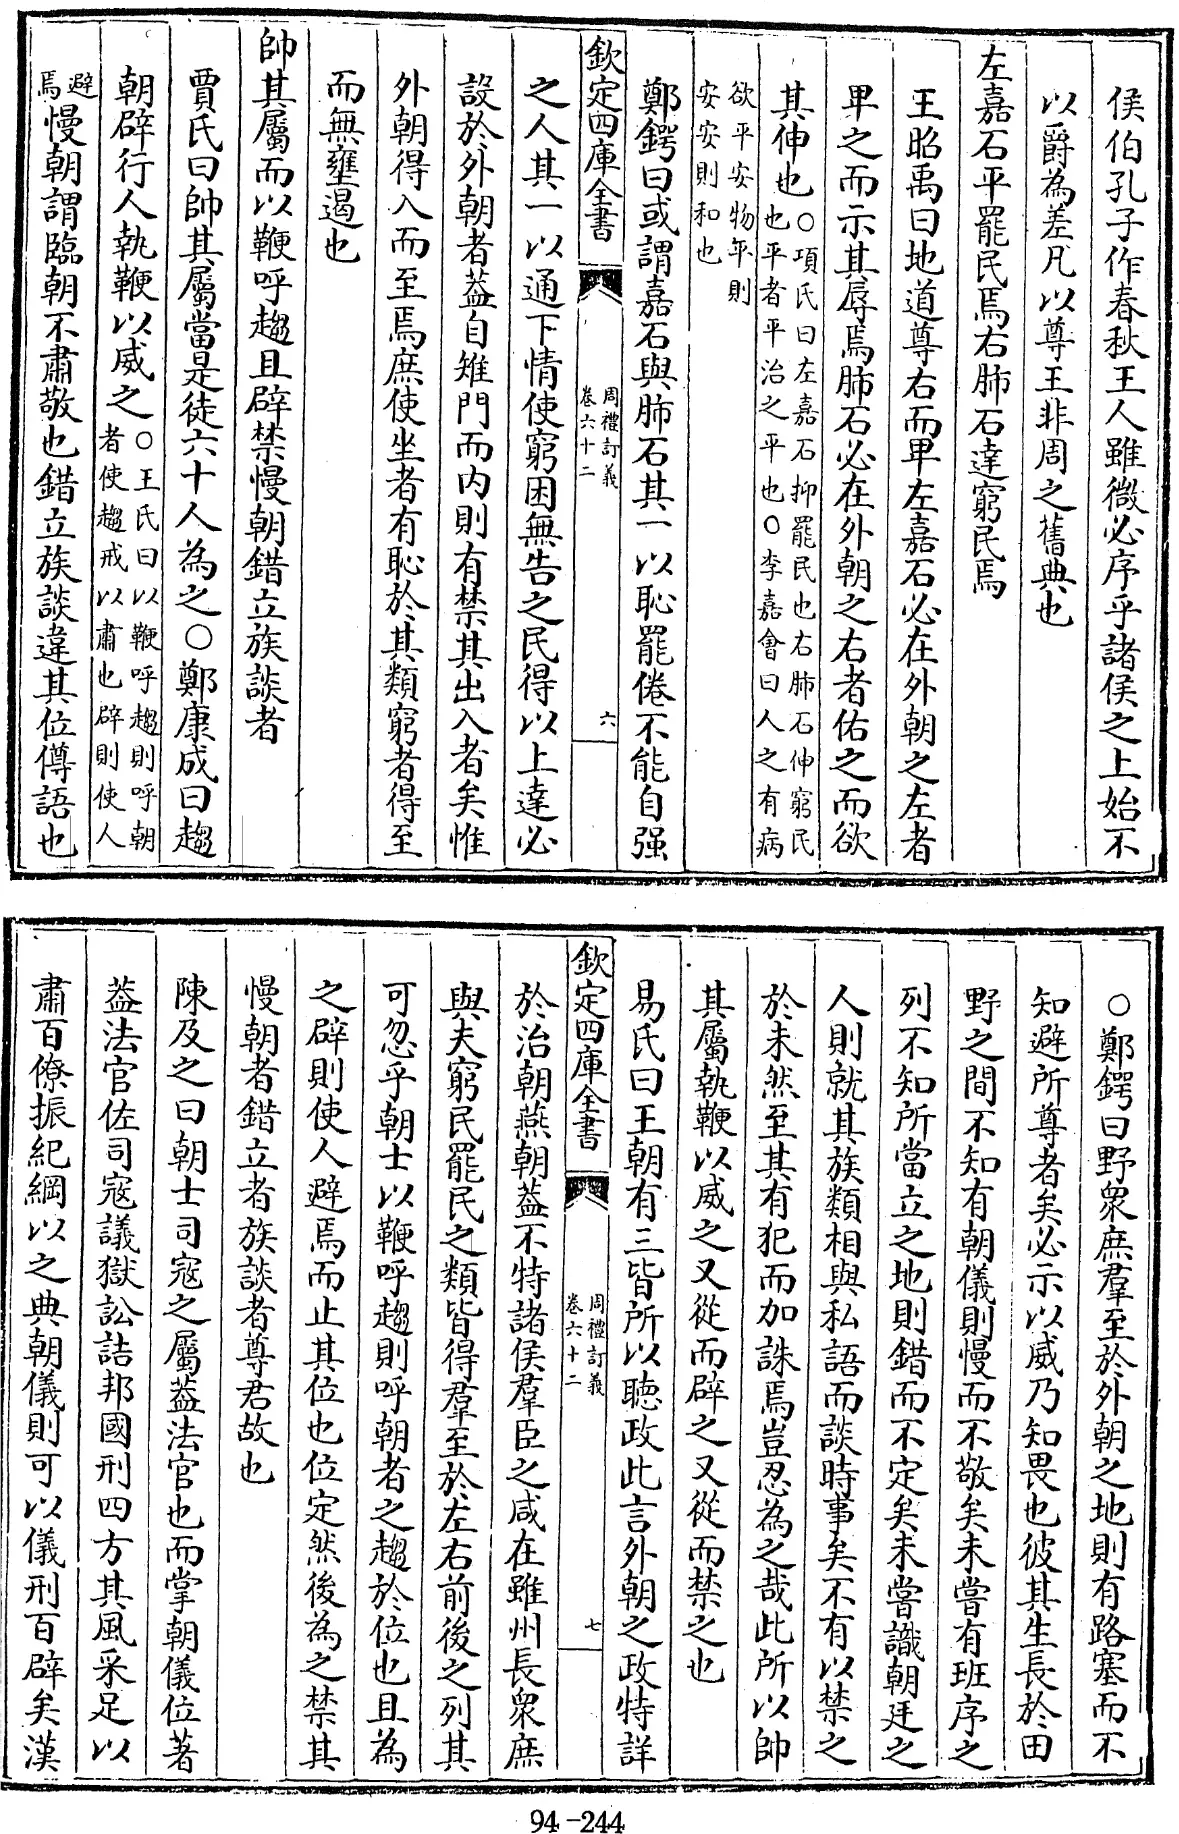 侯伯孔子作春秋王人雖微必序乎諸侯之上始不
以爵為差凡以尊王非周之舊典也
左嘉石平罷民焉右肺石達窮民焉
王昭禹曰地道尊右而卑左嘉石必在外朝之左者
卑之而示其辱焉肺石必在外朝之右者佑之而欲
其伸也
○項氏曰左嘉石抑罷民也右肺石伸窮民
也平者平治之平也○李嘉會曰人之有病
欲平安物平則
安安則和也
鄭鍔曰或謂嘉石與肺石其一以恥罷倦不能自强
欽定四庫全書
周禮訂義
卷六十二
六
之人其一以通下情使窮困無告之民得以上達必
設於外朝者葢自雉門而内則有禁其出入者矣惟
外朝得入而至焉庶使坐者有恥於其類窮者得至
而無壅遏也
帥其屬而以鞭呼趨且辟禁慢朝錯立族談者
賈氏曰帥其屬當是徒六十人為之○鄭康成曰趨
朝辟行人執鞭以威之
○王氏曰以鞭呼趨則呼朝
者使趨戒以肅也辟則使人
避
焉
慢朝謂臨朝不肅敬也錯立族談違其位僔語也
○鄭鍔曰野衆庶羣至於外朝之地則有路塞而不
知避所尊者矣必示以威乃知畏也彼其生長於田
野之間不知有朝儀則慢而不敬矣未嘗有班序之
列不知所當立之地則錯而不定矣未嘗識朝廷之
人則就其族類相與私語而談時事矣不有以禁之
於未然至其有犯而加誅焉豈忍為之哉此所以帥
其屬執鞭以威之又從而辟之又從而禁之也
易氏曰王朝有三皆所以聽政此言外朝之政特詳
欽定四庫全書
周禮訂義
卷六十二
七
於治朝燕朝葢不特諸侯羣臣之咸在雖州長衆庶
與夫窮民罷民之類皆得羣至於左右前後之列其
可忽乎朝士以鞭呼趨則呼朝者之趨於位也且為
之辟則使人避焉而止其位也位定然後為之禁其
慢朝者錯立者族談者尊君故也
陳及之曰朝士司寇之屬葢法官也而掌朝儀位著
葢法官佐司寇議獄訟詰邦國刑四方其風采足以
肅百僚振紀綱以之典朝儀則可以儀刑百辟矣漢
94-244